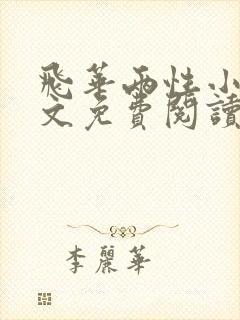 飛華兩性小
文免費閱讀
李麗華